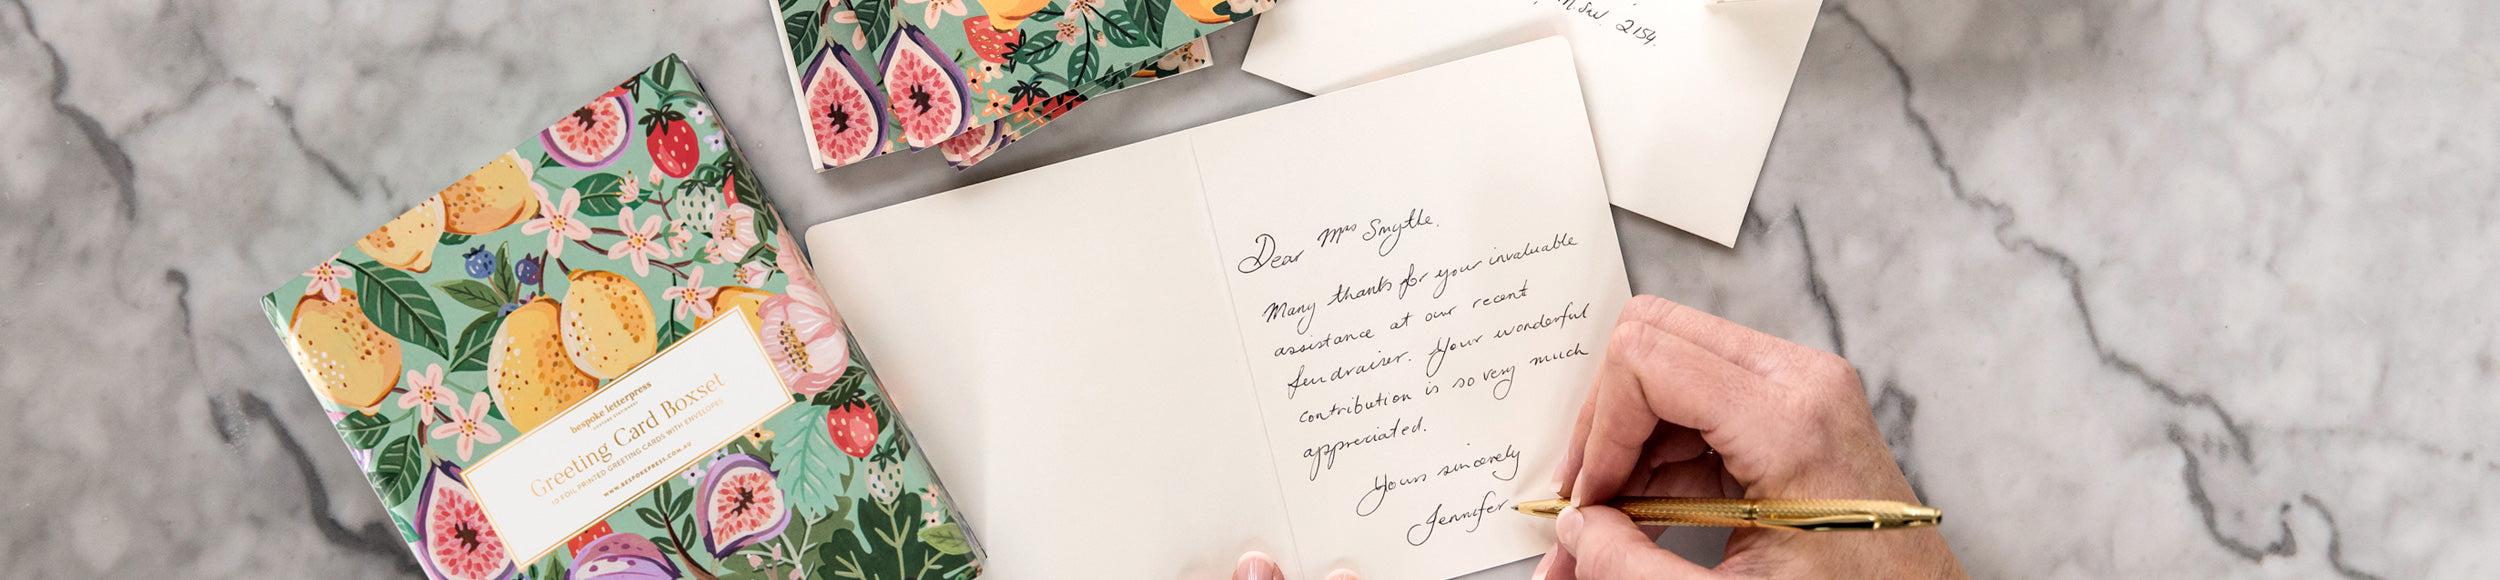 bespoke letterpress
Greeting Card Boxset
10 FOIL PRINTED GREETING CARDS WITH ENVELOPES
WWW.BESPOKEPRESS.COM.AU
2154.
Dear Mrs Smythe.
Many thanks for your invaluable
assistance at our recent
fundraiser. Your wonderful
contribution is so very much
appreciated.
Yours sincerely
Jennifer